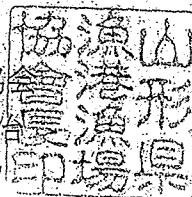 山形県
漁港漁場
協会長印